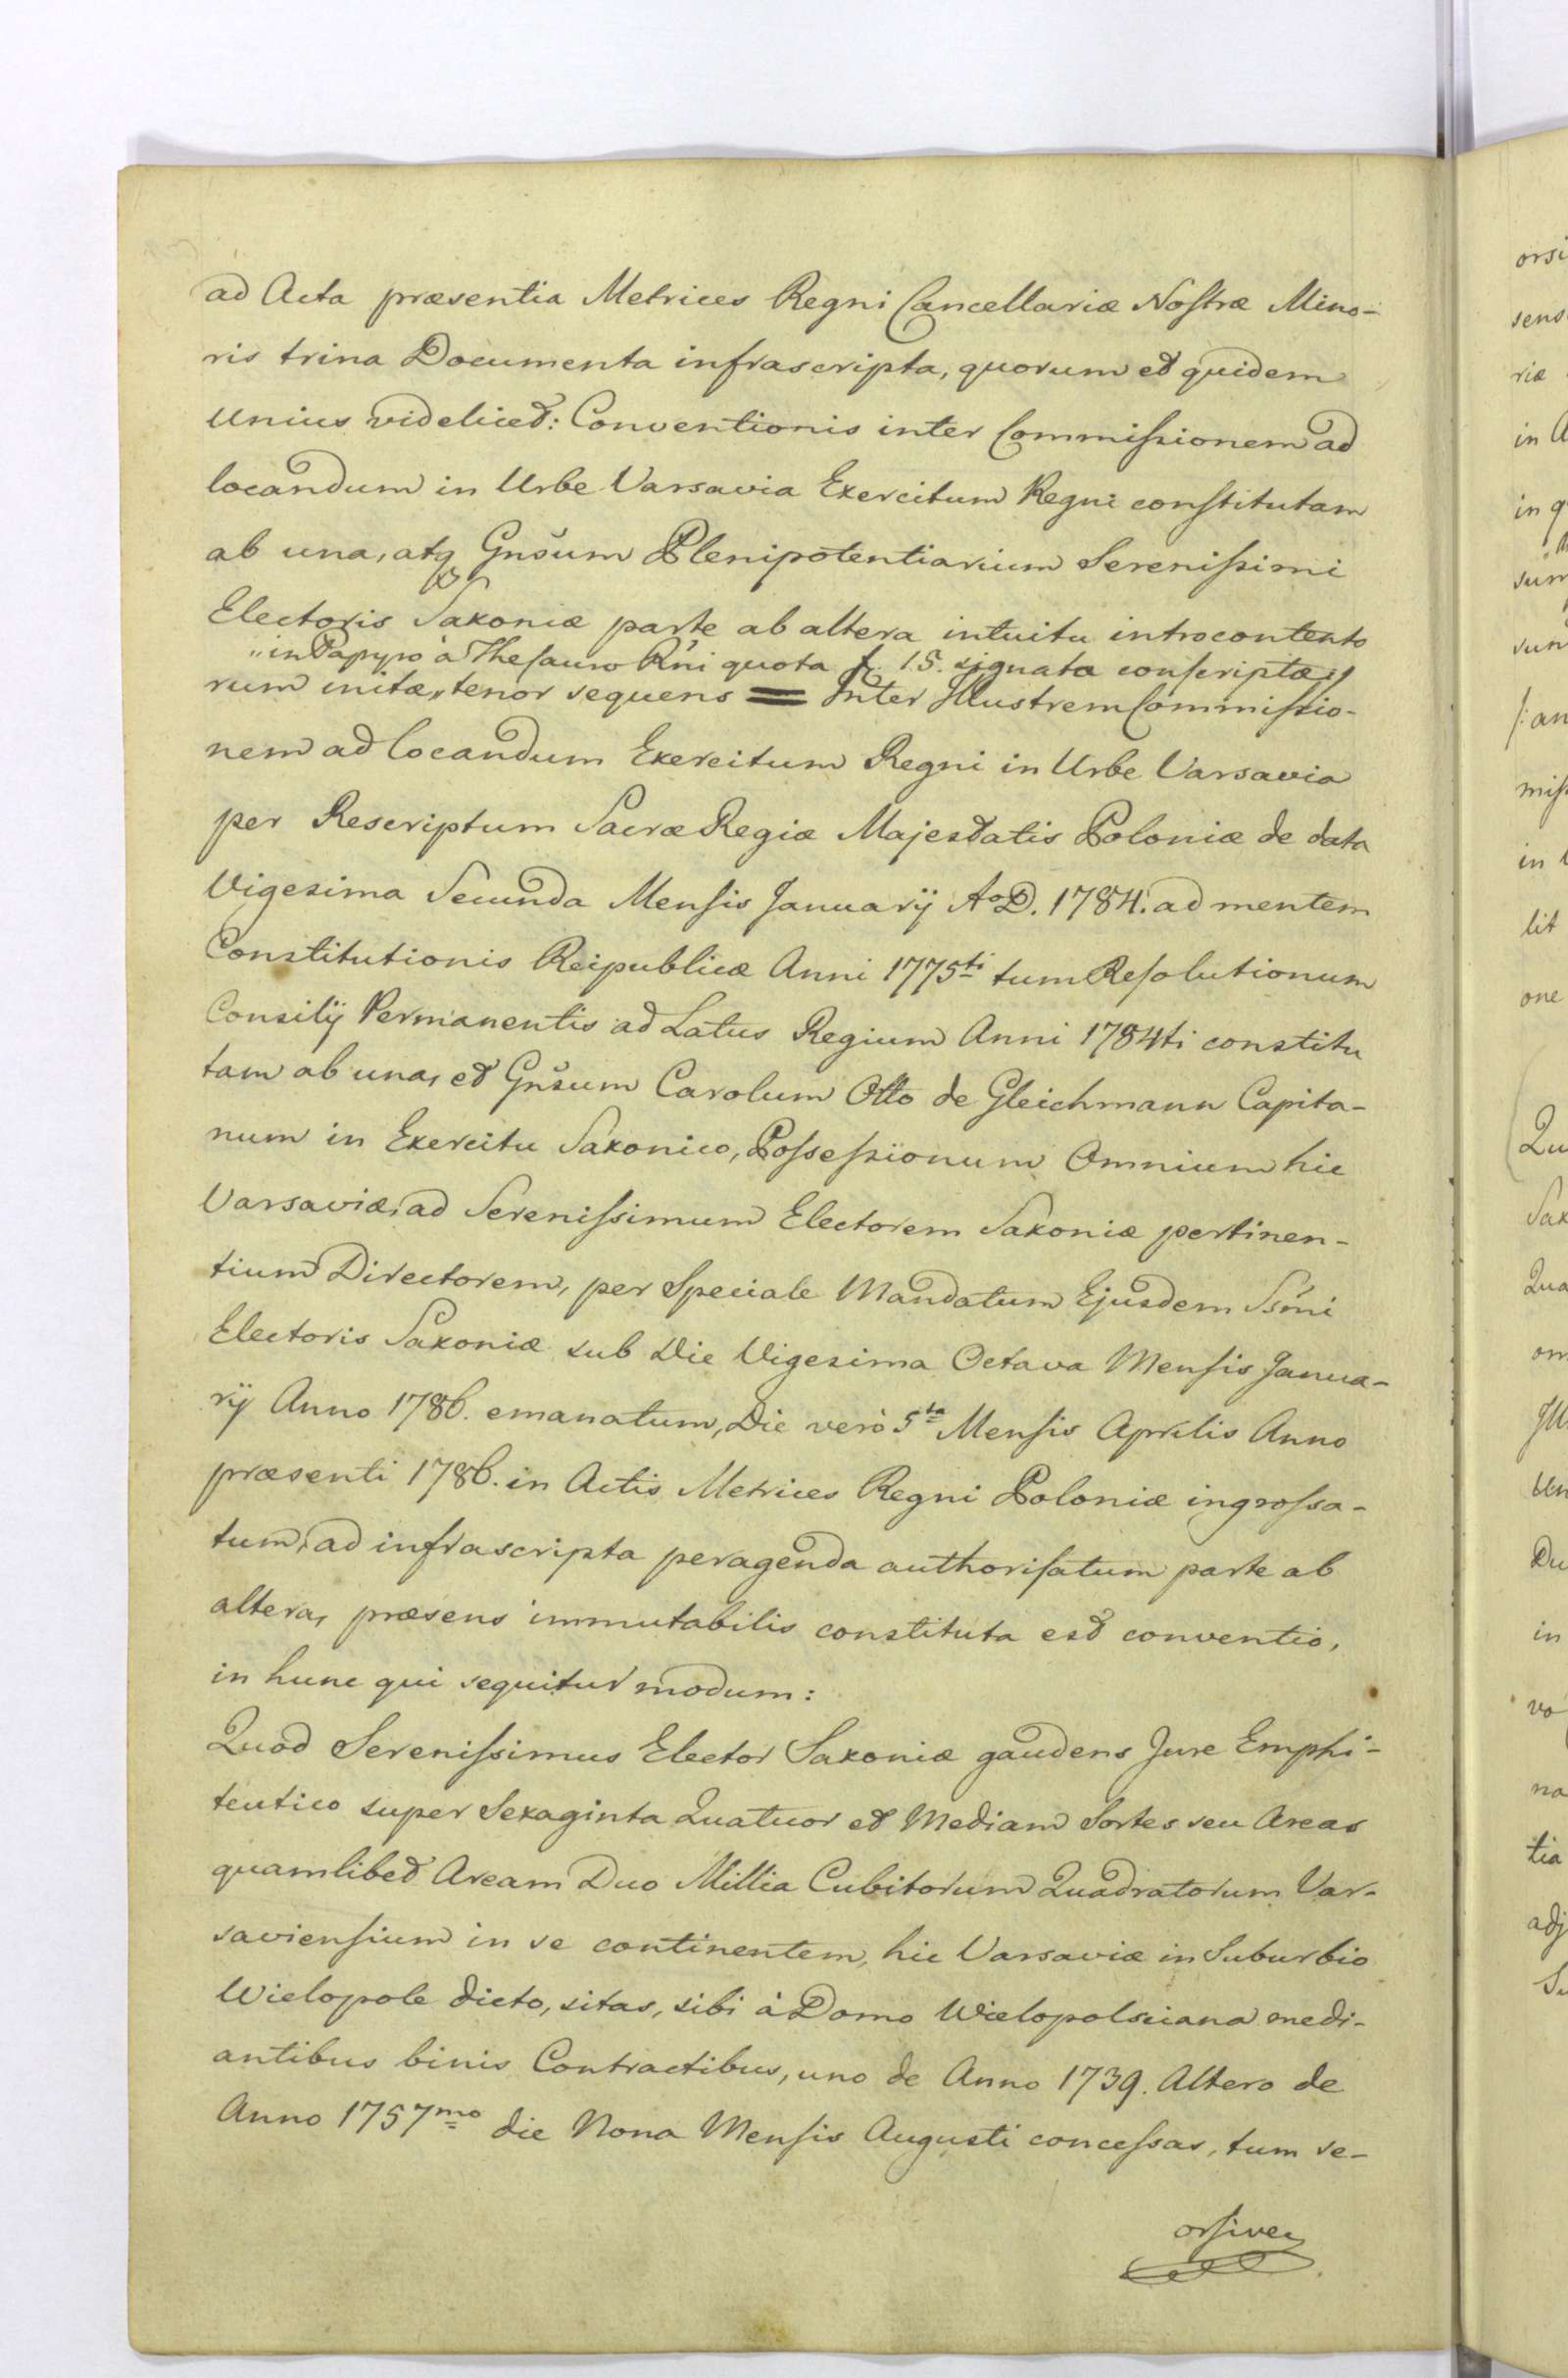 ad Acta præsentia Metrices Regni Cancellariæ Nostræ Mino-
ris trina Documenta infrascripta, quorum et quidem
Unius videlicet: Conventionis inter Commissionem ad
locandum in Urbe Varsavia Exercitum Regni constitutam
ab una, atq Gnsum Plenipotentiarium Serenissimi
Electoris Saxoniæ parte ab altera intuitu introcontento
"in Papyro à Thesauro Rni quota f. 15. signata conscriptæ"
rum initæ, tenor sequens = Inter Illustrem Commissio-
nem ad locandum Exercitum Regni in Urbe Varsavia
per Rescriptum Sacræ Regiæ Majestatis Poloniæ de data
Vigesima Secunda Mensis Januarij Ao D. 1784. ad mentem
Constitutionis Reipublicæ Anni 1775ti tum Resolutionum
Consilij Permanentis ad Latus Regium Anni 1784ti constitu
tam ab una, et Gnsum Carolum Otto de Gleichmann Capita-
num in Exercitu Saxonico, Possessionum Omnium hic
Varsaviæ, ad Serenissimum Electorem Saxoniæ pertinen-
tium Directorem, per Speciale Mandatum Ejusdem Ssmi
Electoris Saxoniæ sub Die Vigesima Octava Mensis Janua-
rij Anno 1786. emanatum, Die verò 5ta Mensis Aprilis Anno
præsenti 1786. in Actis Metrices Regni Poloniæ ingrossa-
tum, ad infrascripta peragenda authorisatum parte ab
altera, præsens immutabilis constituta est conventio,
in hunc qui sequitur modum:
Quod Serenissimus Elector Saxoniæ gaudens Jure Emphi-
teutico super Sexaginta Quatuor et Mediam Sortes seu Areas
quamlibet Aream Duo Millia Cubitorum Quadratorum Var-
saviensium in se continentem, hic Varsaviæ in Suburbio
Wielopole dicto, sitas, sibi à Domo Wielopolsciana medi-
antibus binis Contractibus, uno de Anno 1739. Altero de
Anno 1757mo die Nona Mensis Augusti concessas, tum se-
orsive